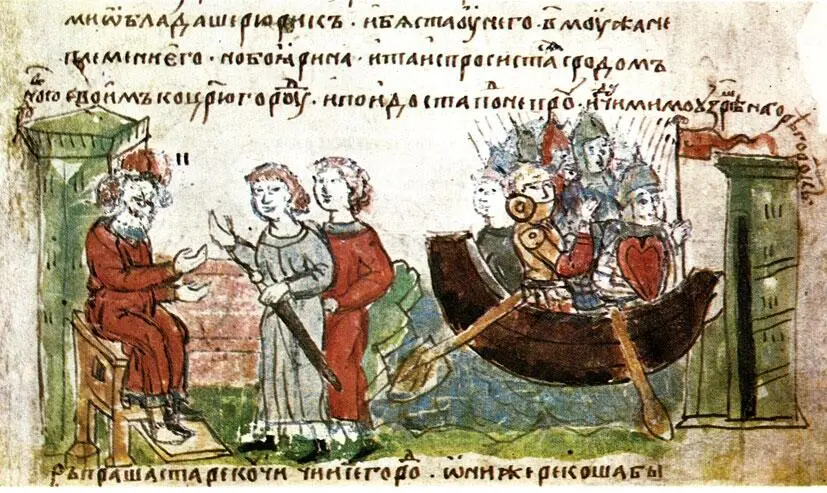 ми ѡблада же рюрикъ · и бѧста оу него · в҃ моужа не
племени его · но боꙗрина · и та испросистасѧ с родомъ
своимъ ко црюгородоу · и поидоста по непроу · идꙋчи мимо узрѣ на го
рѣ городокъ
въпрашаста рекочи чии се город · ѡни же рекоша бы